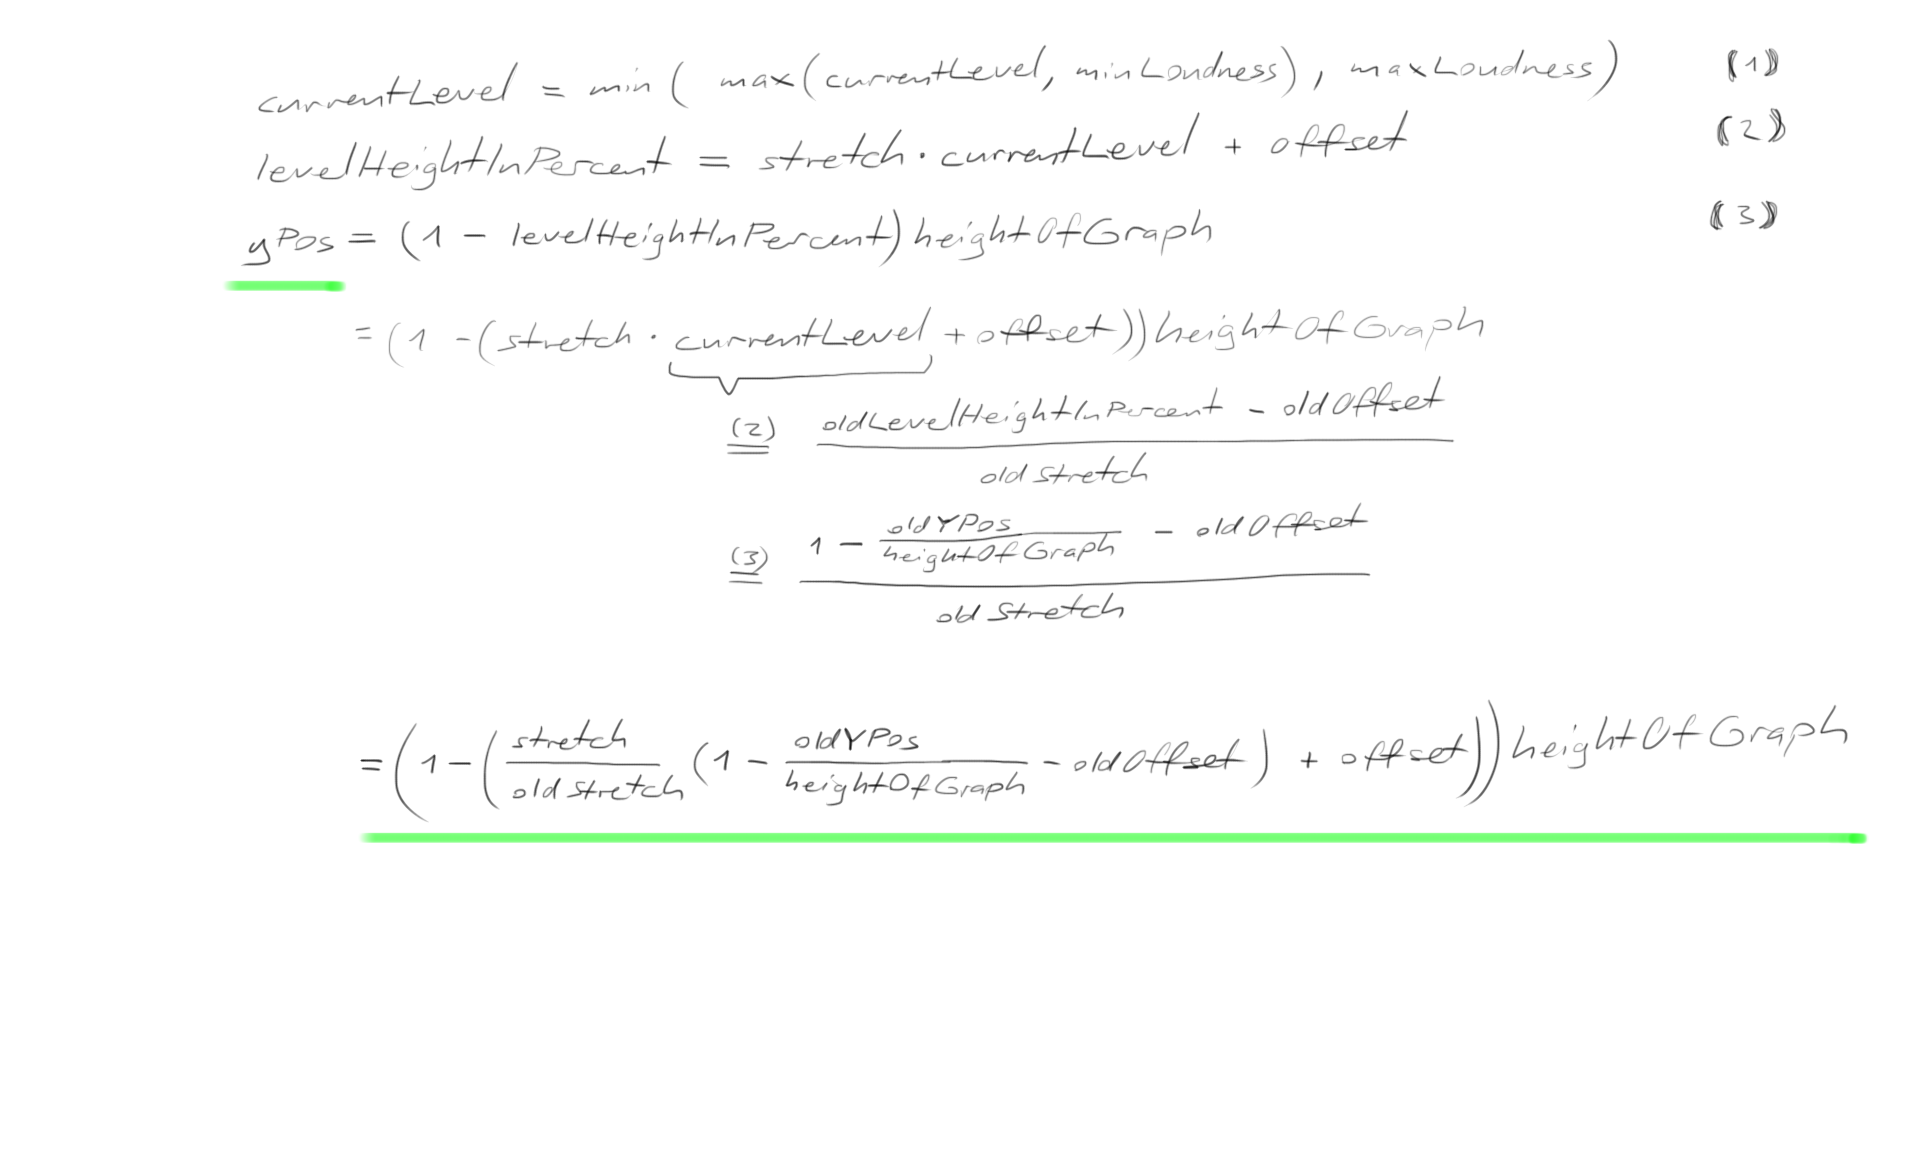 currentLevel = min ( max(currentLevel, minLoudness), maxLoudness) (1)
levelHeightInPercent = stretch · currentLevel + offset (2)
yPos = (1 - levelHeightInPercent) heightOfGraph (3)
= (1 - (stretch · currentLevel + offset)) heightOfGraph
oldLevelHeightInPercent - oldOffset
(2) =
oldStretch
oldYPos
(3) = 1 - - oldOffset
heightOfGraph
oldStretch
stretch oldYPos
= (1 - ( (1 - - oldOffset) + offset)) heightOfGraph
oldStretch heightOfGraph